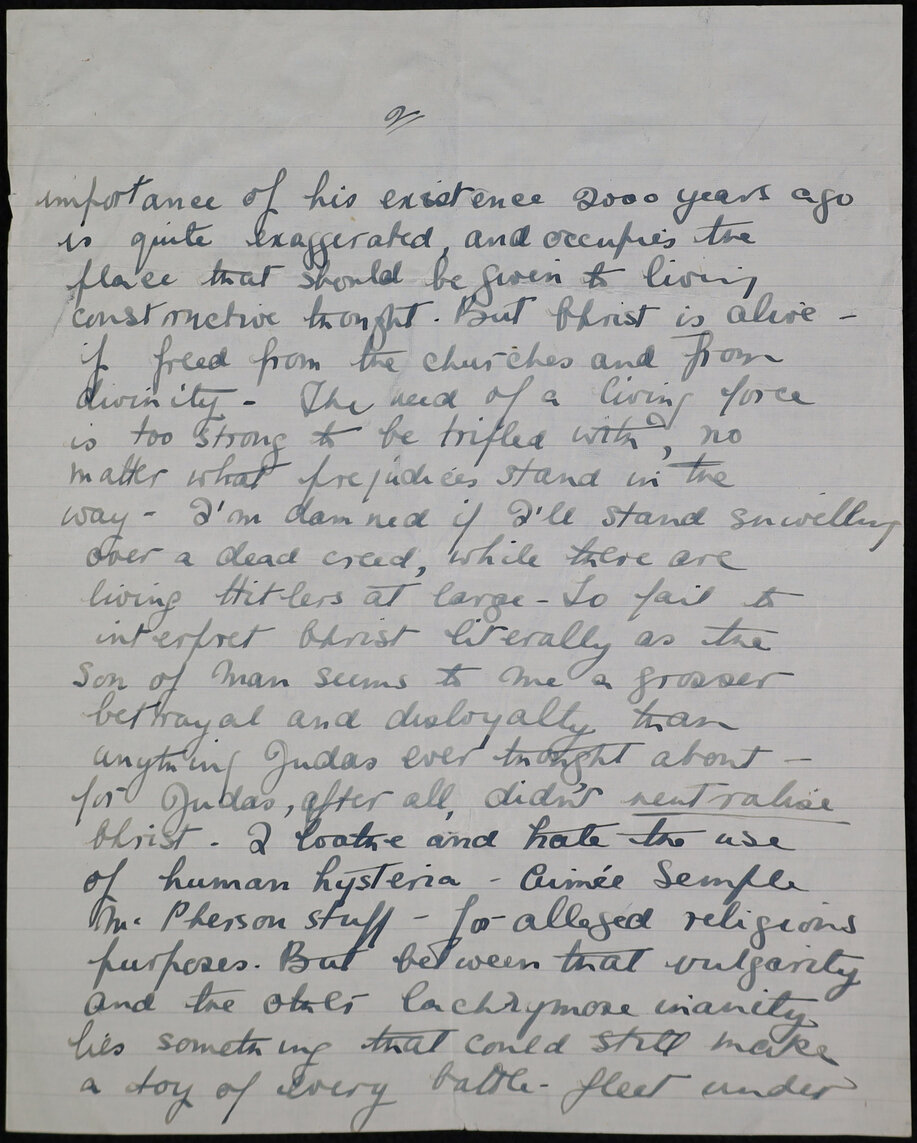 2
importance of his existence 2000 years ago
is quite exaggerated, and occupies the
place that should be given to living
constructive thought. But Christ is alive -
if freed from the churches and from
divinity - The need of a living force
is too strong to be trifled with, no
matter what prejudices stand in the
way - I'm damned if I'll stand snivelling
over a dead creed, while there are
living Hitlers at large - To fail to
interpret Christ literally as the
Son of Man seems to me a grosser
betrayal and disloyalty than
anything Judas ever thought about -
for Judas, after all, didn't neutralise
Christ. I loathe and hate the use
of human hysteria - Aimée Semple
McPherson stuff - for alleged religious
purposes. But between that vulgarity
and the other lachrymose inanity
lies something that could still make
a toy of every battle-fleet under